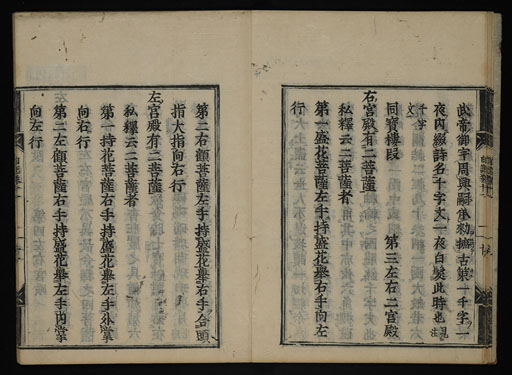 此帝御宇周興嗣奉勅撫古第一千字一
夜內綴詩名千字文一夜白髮此時也
千字
同寶樓段　第三左右二宮殿
右宮殿有二菩薩
私釋云二菩薩者
第一盛花菩薩左手持盛花舉右手向左
行
第二右顧菩薩左手持盛花舉右手合頭
指大指向右行
左宮殿有二菩薩
私釋云二菩薩者
第一持花菩薩右手持盛花舉左手外掌
向右行
第二左顧菩薩右手持盛花舉左手內掌
向左行